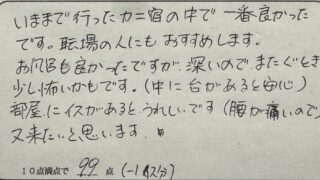 いままで行ったカニ宿の中で一番良かった
です。職場の人にもおすすめします。
お風呂も良かったですが、深いのでまたぐとき
少し怖いかもです。(中に台があると安心)
部屋にイスがあるとうれしいです(腰が痛いので)
又来たいと思います。
10点満点で 99 点 (-1イス分)